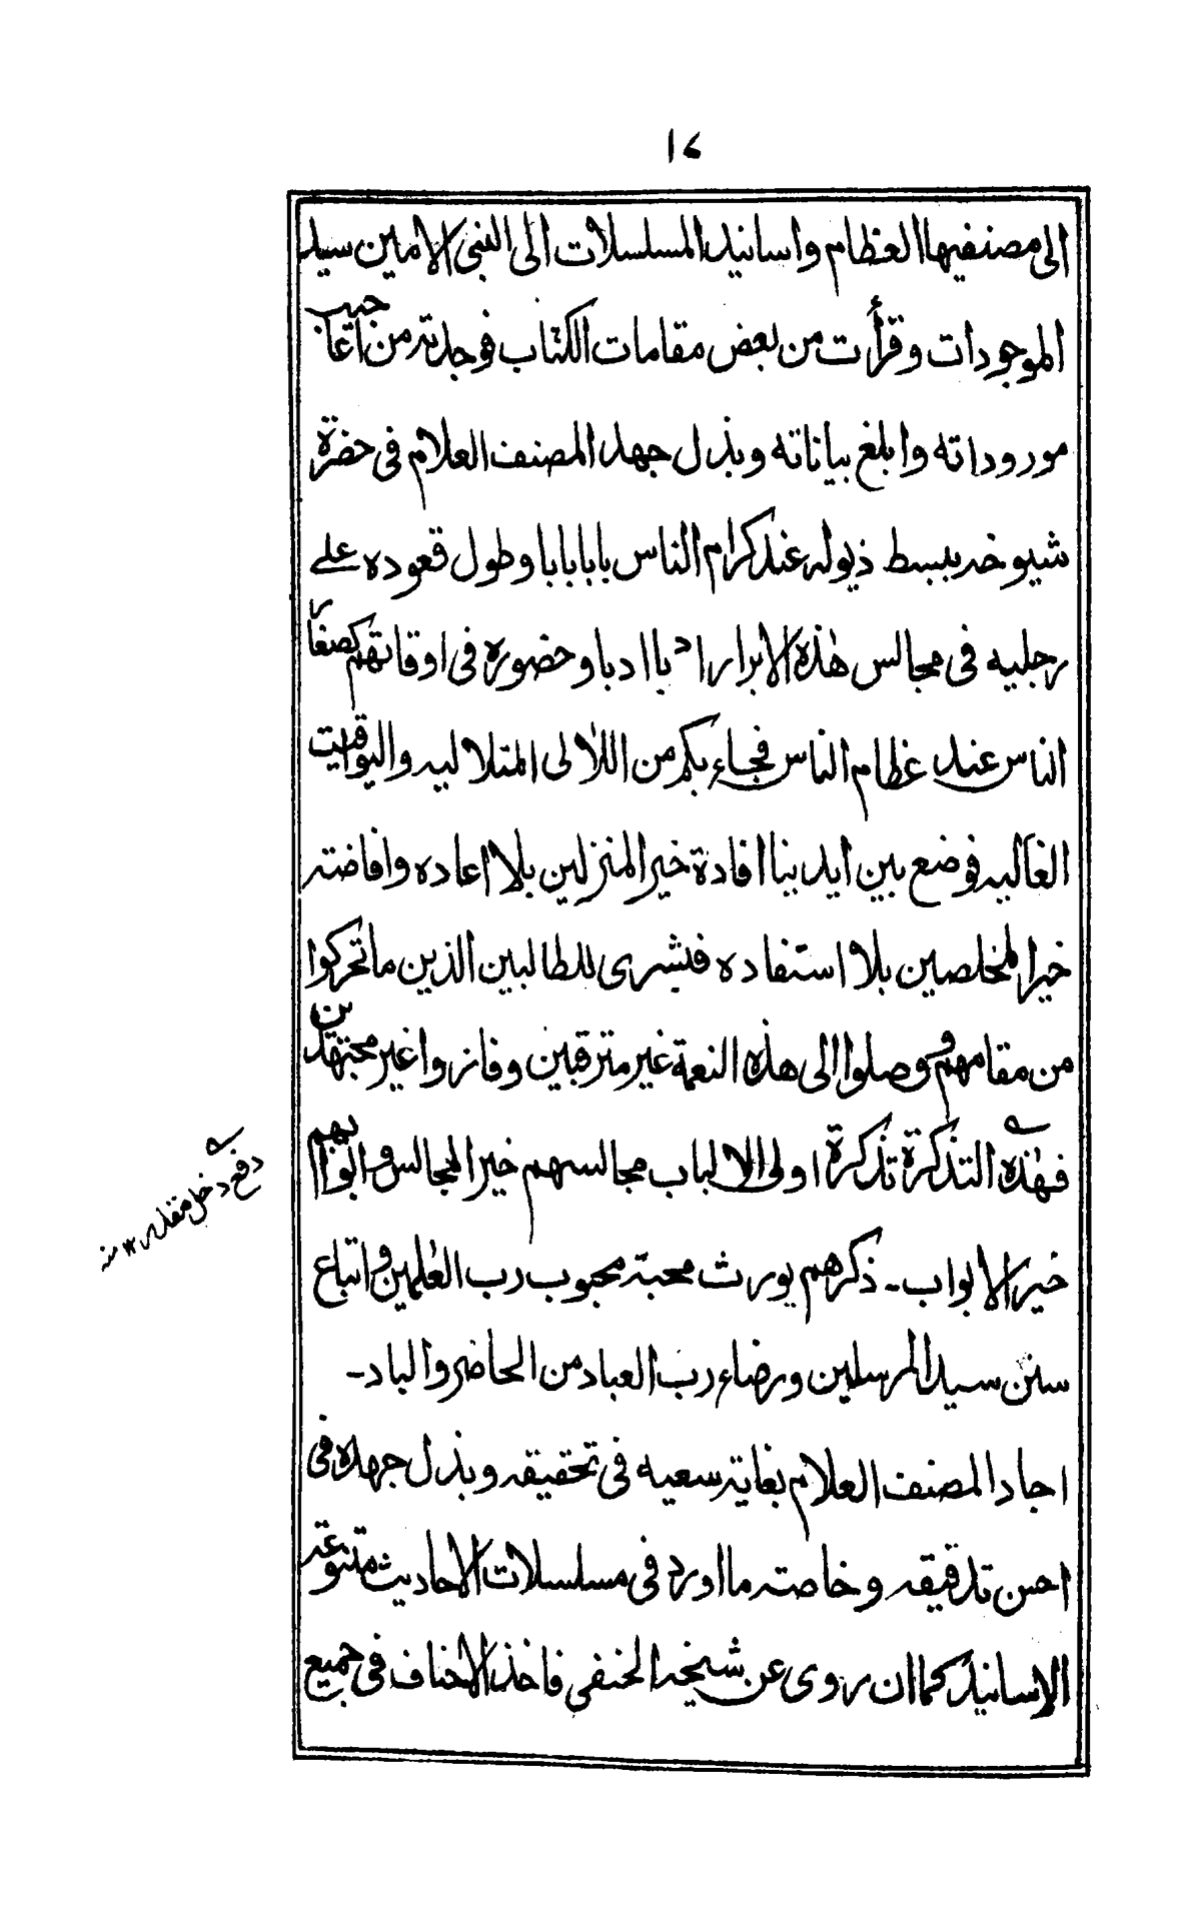 ١٤
الى مصنفيها العظام واسانيد المسلسلات الى النبى الامين سيد
الموجودات وقرأت من بعض مقامات الكتاب فوجدته من اعاجيب
موروداته وابلغ بياناته وبذل جهد المصنف العلام فى حضرة
شيوخه ببسط ذيوله عند كرام الناس بابا بابا وطول قعوده علے
رجليه فى مجالس هٰذه الابرار ادبا ادبا وحضوره فى اوقاتهم كصغار
الناس عند عظام الناس فجاء بكم من اللاٰلى المتلاليه واليواقيت
الغاليه فوضع بين ايدينا افادة خير المنزلين بلا اعاده وافاضته
خير المخلصين بلا استفاده فبشرى للطالبين الذين ما تحركوا
من مقامهم ووصلوا الى هذه النعمة غير مترقبين وفازوا غير مجتهدين
فهٰذه التذكرة تذكرة اولى الالباب مجالسهم خير المجالس وابوابهم
خير الابواب - ذكرهم يورث محبة محبوب رب العٰلمين واتباع
سنن سيد المرسلين ورضاء رب العباد من الحاضر والباد -
اجاد المصنف العلام بغاية سعيه فى تحقيقه وبذل جهده فى
احسن تدقيقه وخاصته ما اورد فى مسلسلات الاحاديث متنوعة
الاسانيد كما ان روى عن شيخه الحنفى فاخذ الاحناف فى جميع
دفع دخل مقدر ١٢ منه